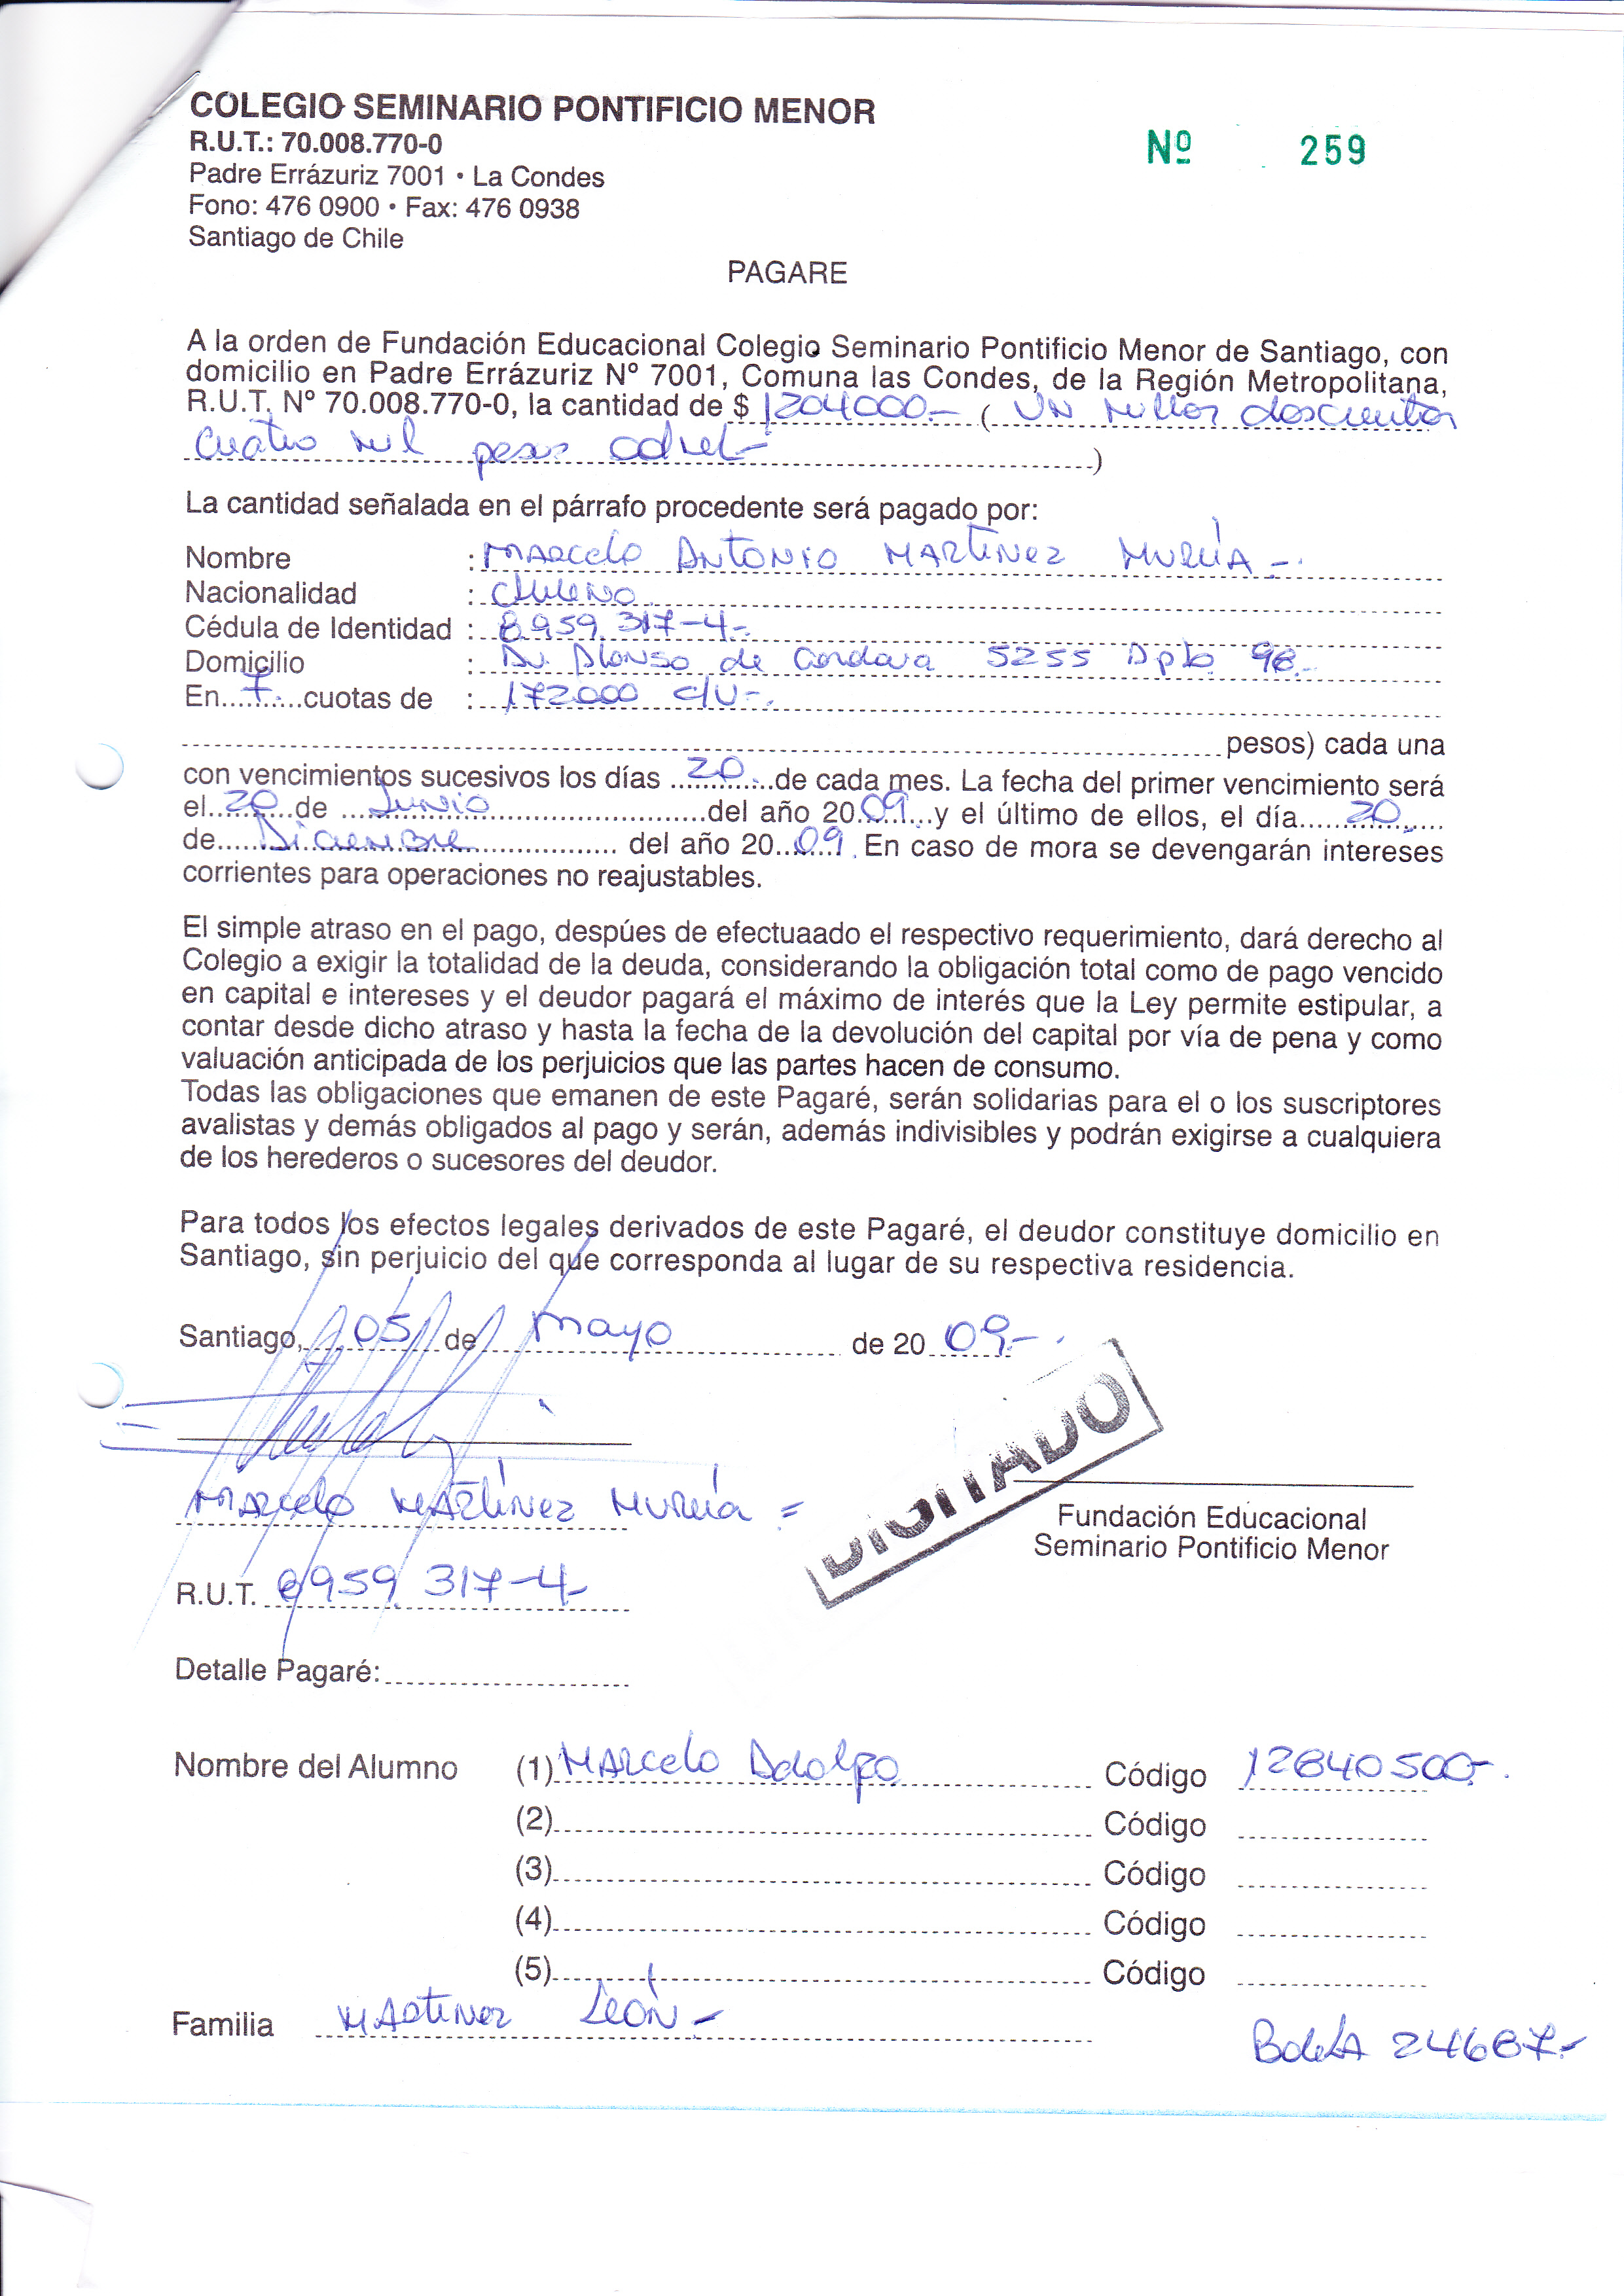 COLEGIO SEMINARIO PONTIFICIO MENOR
R.U.T.: 70.008.770-0
Nº 259
Padre Errázuriz 7001 • La Condes
Fono: 476 0900 • Fax: 476 0938
Santiago de Chile
PAGARE
A la orden de Fundación Educacional Colegio Seminario Pontificio Menor de Santiago, con
domicilio en Padre Errázuriz Nº 7001, Comuna las Condes, de la Región Metropolitana,
R.U.T. Nº 70.008.770-0, la cantidad de $ 1204000.- ( UN millon doscientos
cuatro mil pesos )
La cantidad señalada en el párrafo procedente será pagado por:
Nombre : MARCELO ANTONIO MARTÍNEZ MURÚA.-
Nacionalidad : CHILENO
Cédula de Identidad : 8.959.317-4.-
Domicilio : Av. Alonso de Cordova 5255 Dpto. 98.-
En 7 cuotas de : 172000 c/u-.
pesos) cada una
con vencimientos sucesivos los días 20 de cada mes. La fecha del primer vencimiento será
el 20 de Junio del año 2009 y el último de ellos, el día 20
de Diciembre del año 20 09. En caso de mora se devengarán intereses
corrientes para operaciones no reajustables.
El simple atraso en el pago, despúes de efectuaado el respectivo requerimiento, dará derecho al
Colegio a exigir la totalidad de la deuda, considerando la obligación total como de pago vencido
en capital e intereses y el deudor pagará el máximo de interés que la Ley permite estipular, a
contar desde dicho atraso y hasta la fecha de la devolución del capital por vía de pena y como
valuación anticipada de los perjuicios que las partes hacen de consumo.
Todas las obligaciones que emanen de este Pagaré, serán solidarias para el o los suscriptores
avalistas y demás obligados al pago y serán, además indivisibles y podrán exigirse a cualquiera
de los herederos o sucesores del deudor.
Para todos los efectos legales derivados de este Pagaré, el deudor constituye domicilio en
Santiago, sin perjuicio del que corresponda al lugar de su respectiva residencia.
Santiago, 05 de mayo de 20 09.-
DIGITADO
MARCELO MARTÍNEZ MURÚA
Fundación Educacional
Seminario Pontificio Menor
R.U.T. 8959.317-4-
Detalle Pagaré:
Nombre del Alumno (1) MARCELO Adolfo Código 12840500-.
(2) Código
(3) Código
(4) Código
(5) Código
Familia MARTINEZ León-
Boleta 24687.-